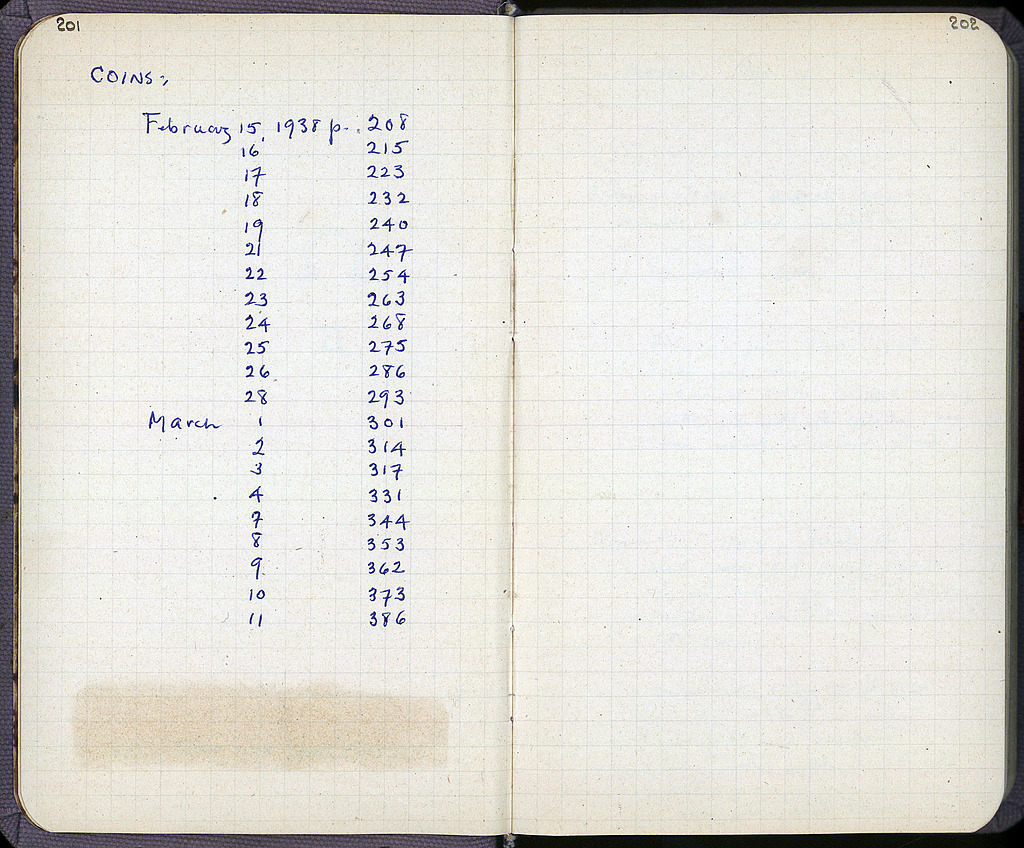 201
COINS:,
February 15, 1938 p. 208
16 215
17 223
18 232
19 240
21 247
22 254
23 263
24 268
25 275
26 286
28 293
March 1 301
2 314
3 317
4 331
7 344
8 353
9 362
10 373
11 386
202